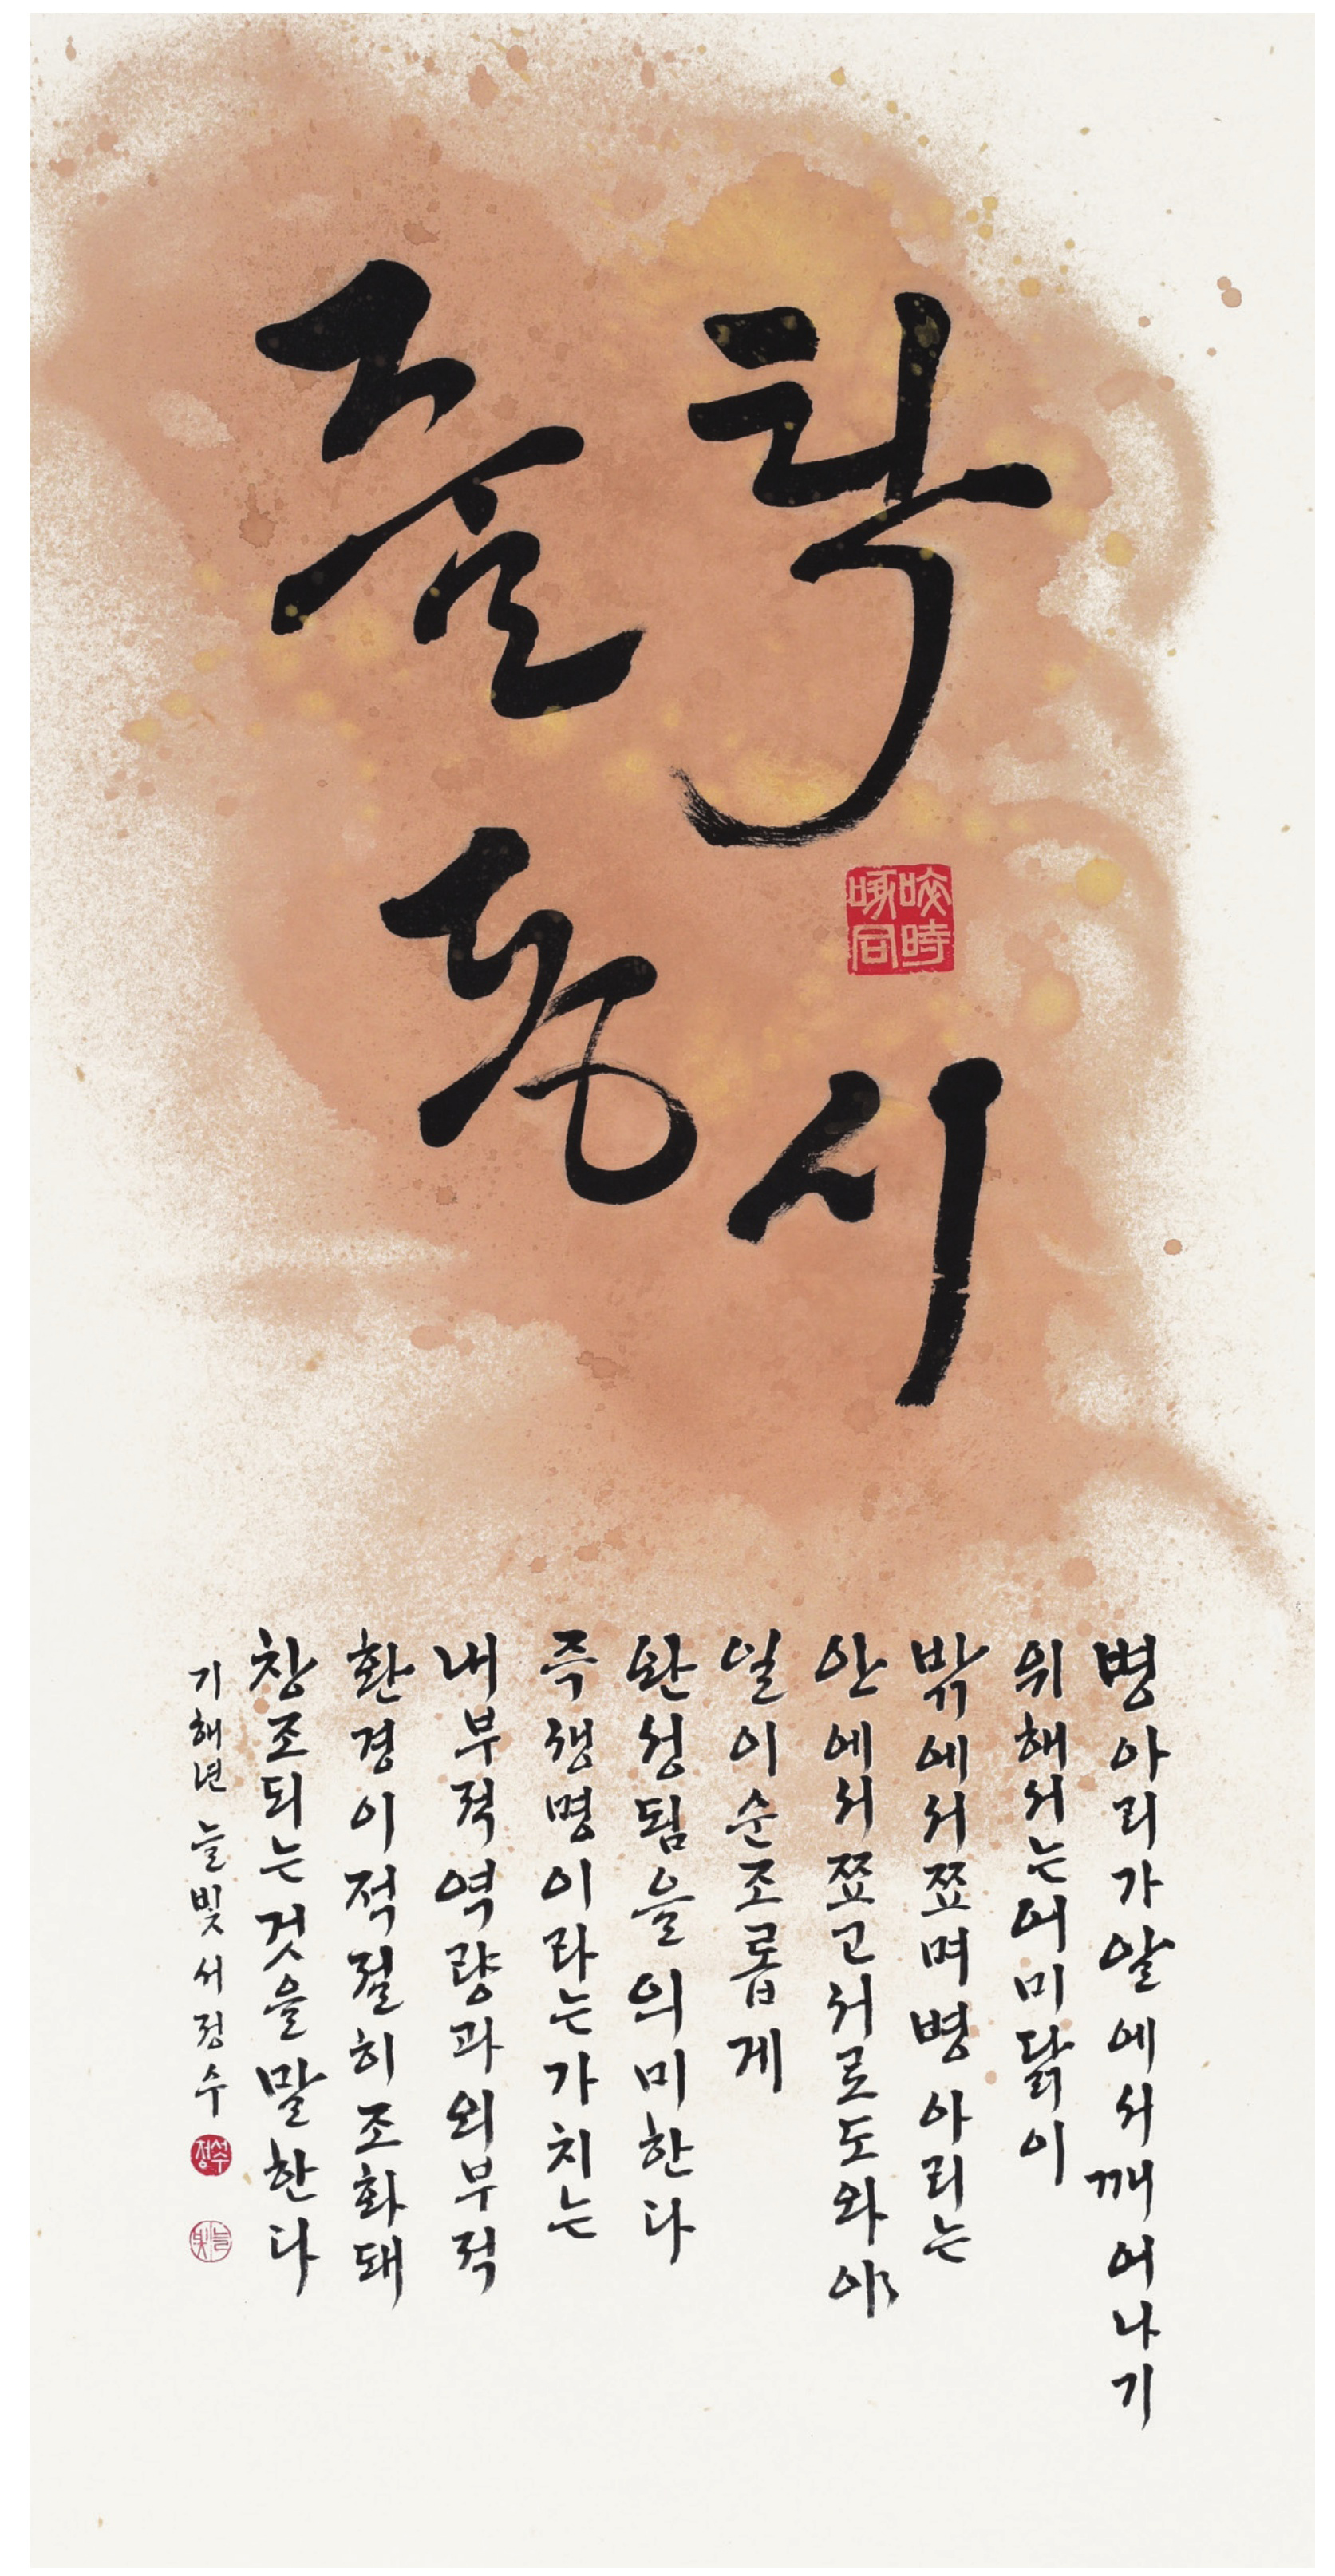 줄탁
동시
啐啄
同時
병아리가알에서깨어나기
위해서는어미닭이
밖에서쪼며병아리는
안에서쪼고서로도와야
일이순조롭게
완성됨을의미한다
즉생명이라는가치는
내부적역량과외부적
환경이적절히조화돼
창조되는것을말한다
기해년 늘빛서정수
서정수
늘빛